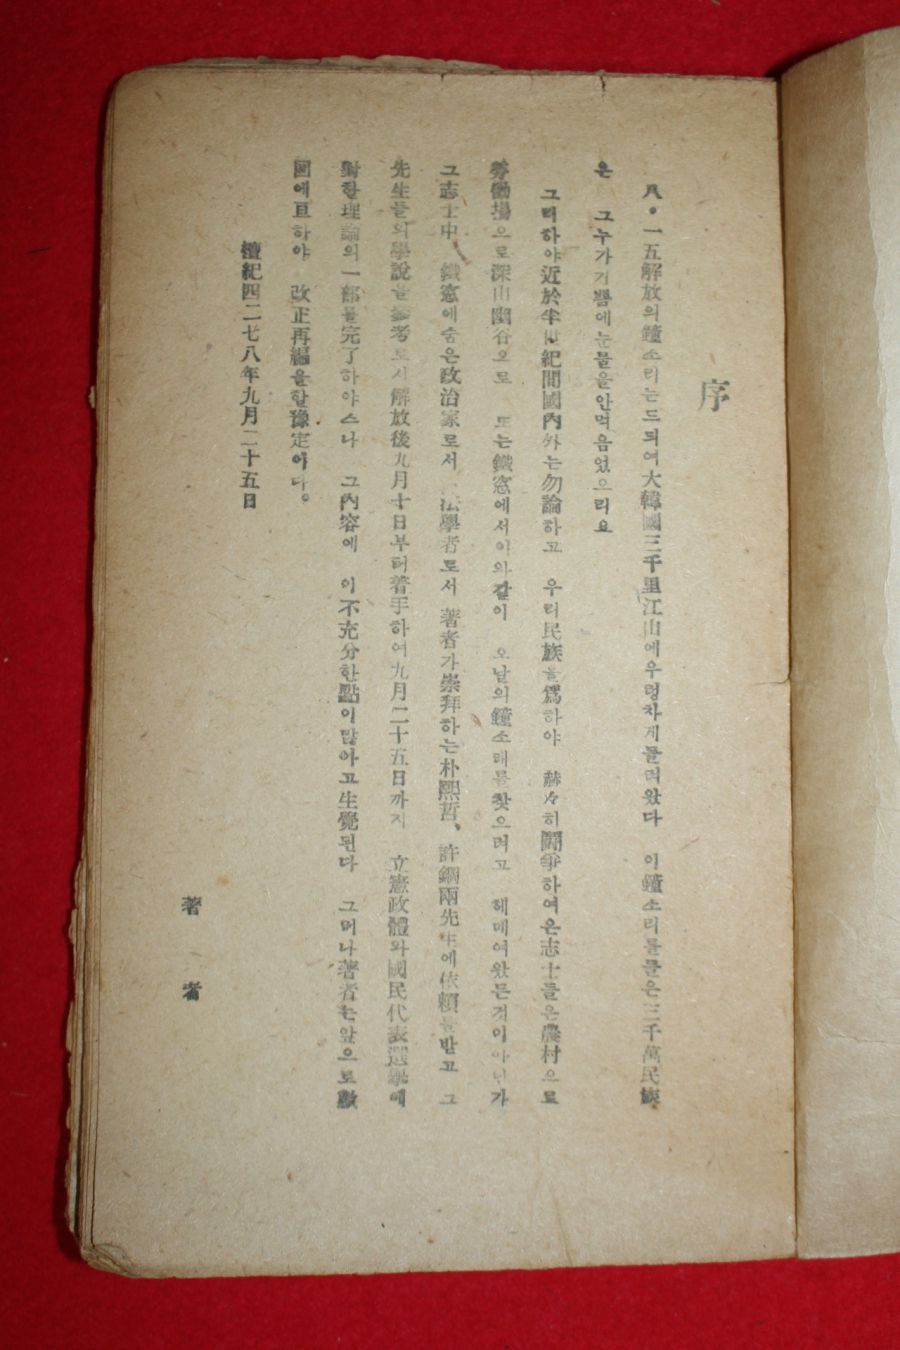 序
八•一五解放의鐘소리는드듸여大韓國三千里江山에우렁차게들려왔다 이鐘소리를들은三千萬民族
은 그누가기쁨에눈물을안먹음었으리요
그리하야近於半世紀間國內外는勿論하고 우리民族을爲하야 赫々히鬪爭하여온志士들은農村으로
勞働場으로深山幽谷으로 또는鐵窓에서이와같이 오날의鐘소래를찾으려고 헤매여왔든것이아닌가
그志士中、鐵窓에숨은政治家로서、法學者로서 著者가崇拜하는朴熙哲、許鋼兩先生에依賴를받고 그
先生들의學說을參考로서解放後九月十日부터着手하여九月二十五日까지 立憲政體와國民代表選擧에
對할理論의一部를完了하야스나 그內容에 이不充分한點이많아고生覺된다 그머나著者는앞으로數
回에亘하야 改正再編을할豫定이다。
檀紀四二七八年九月二十五日
著 者